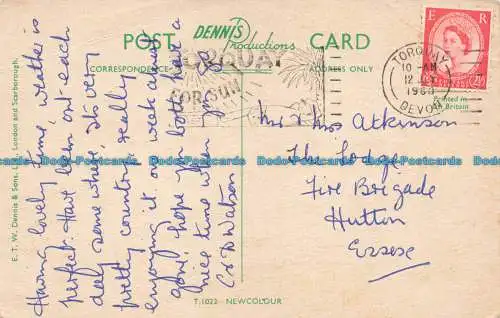 POST DENNIS Productions CARD
CORRESPONDENCE ADDRESS ONLY
TORQUAY
FOR SUN
E R
TORQUAY
10 - AM
1960
DEVON
Printed in
Gt. Britain
Having lovely time, weather is
perfect. Have been out each
day some where, its very
pretty country, really
enjoying it on week at
gone, hope you both have a
nice time when you go
Mr & Mrs Atkinson
The Lodge
Fire Brigade
Hutton
Essex
E. T. W. Dennis & Sons, Ltd., London and Scarborough.
T.1022 NEWCOLOUR
Dodo-Postcards Dodo-Postcards Dodo-Postcards Dodo-Postcards